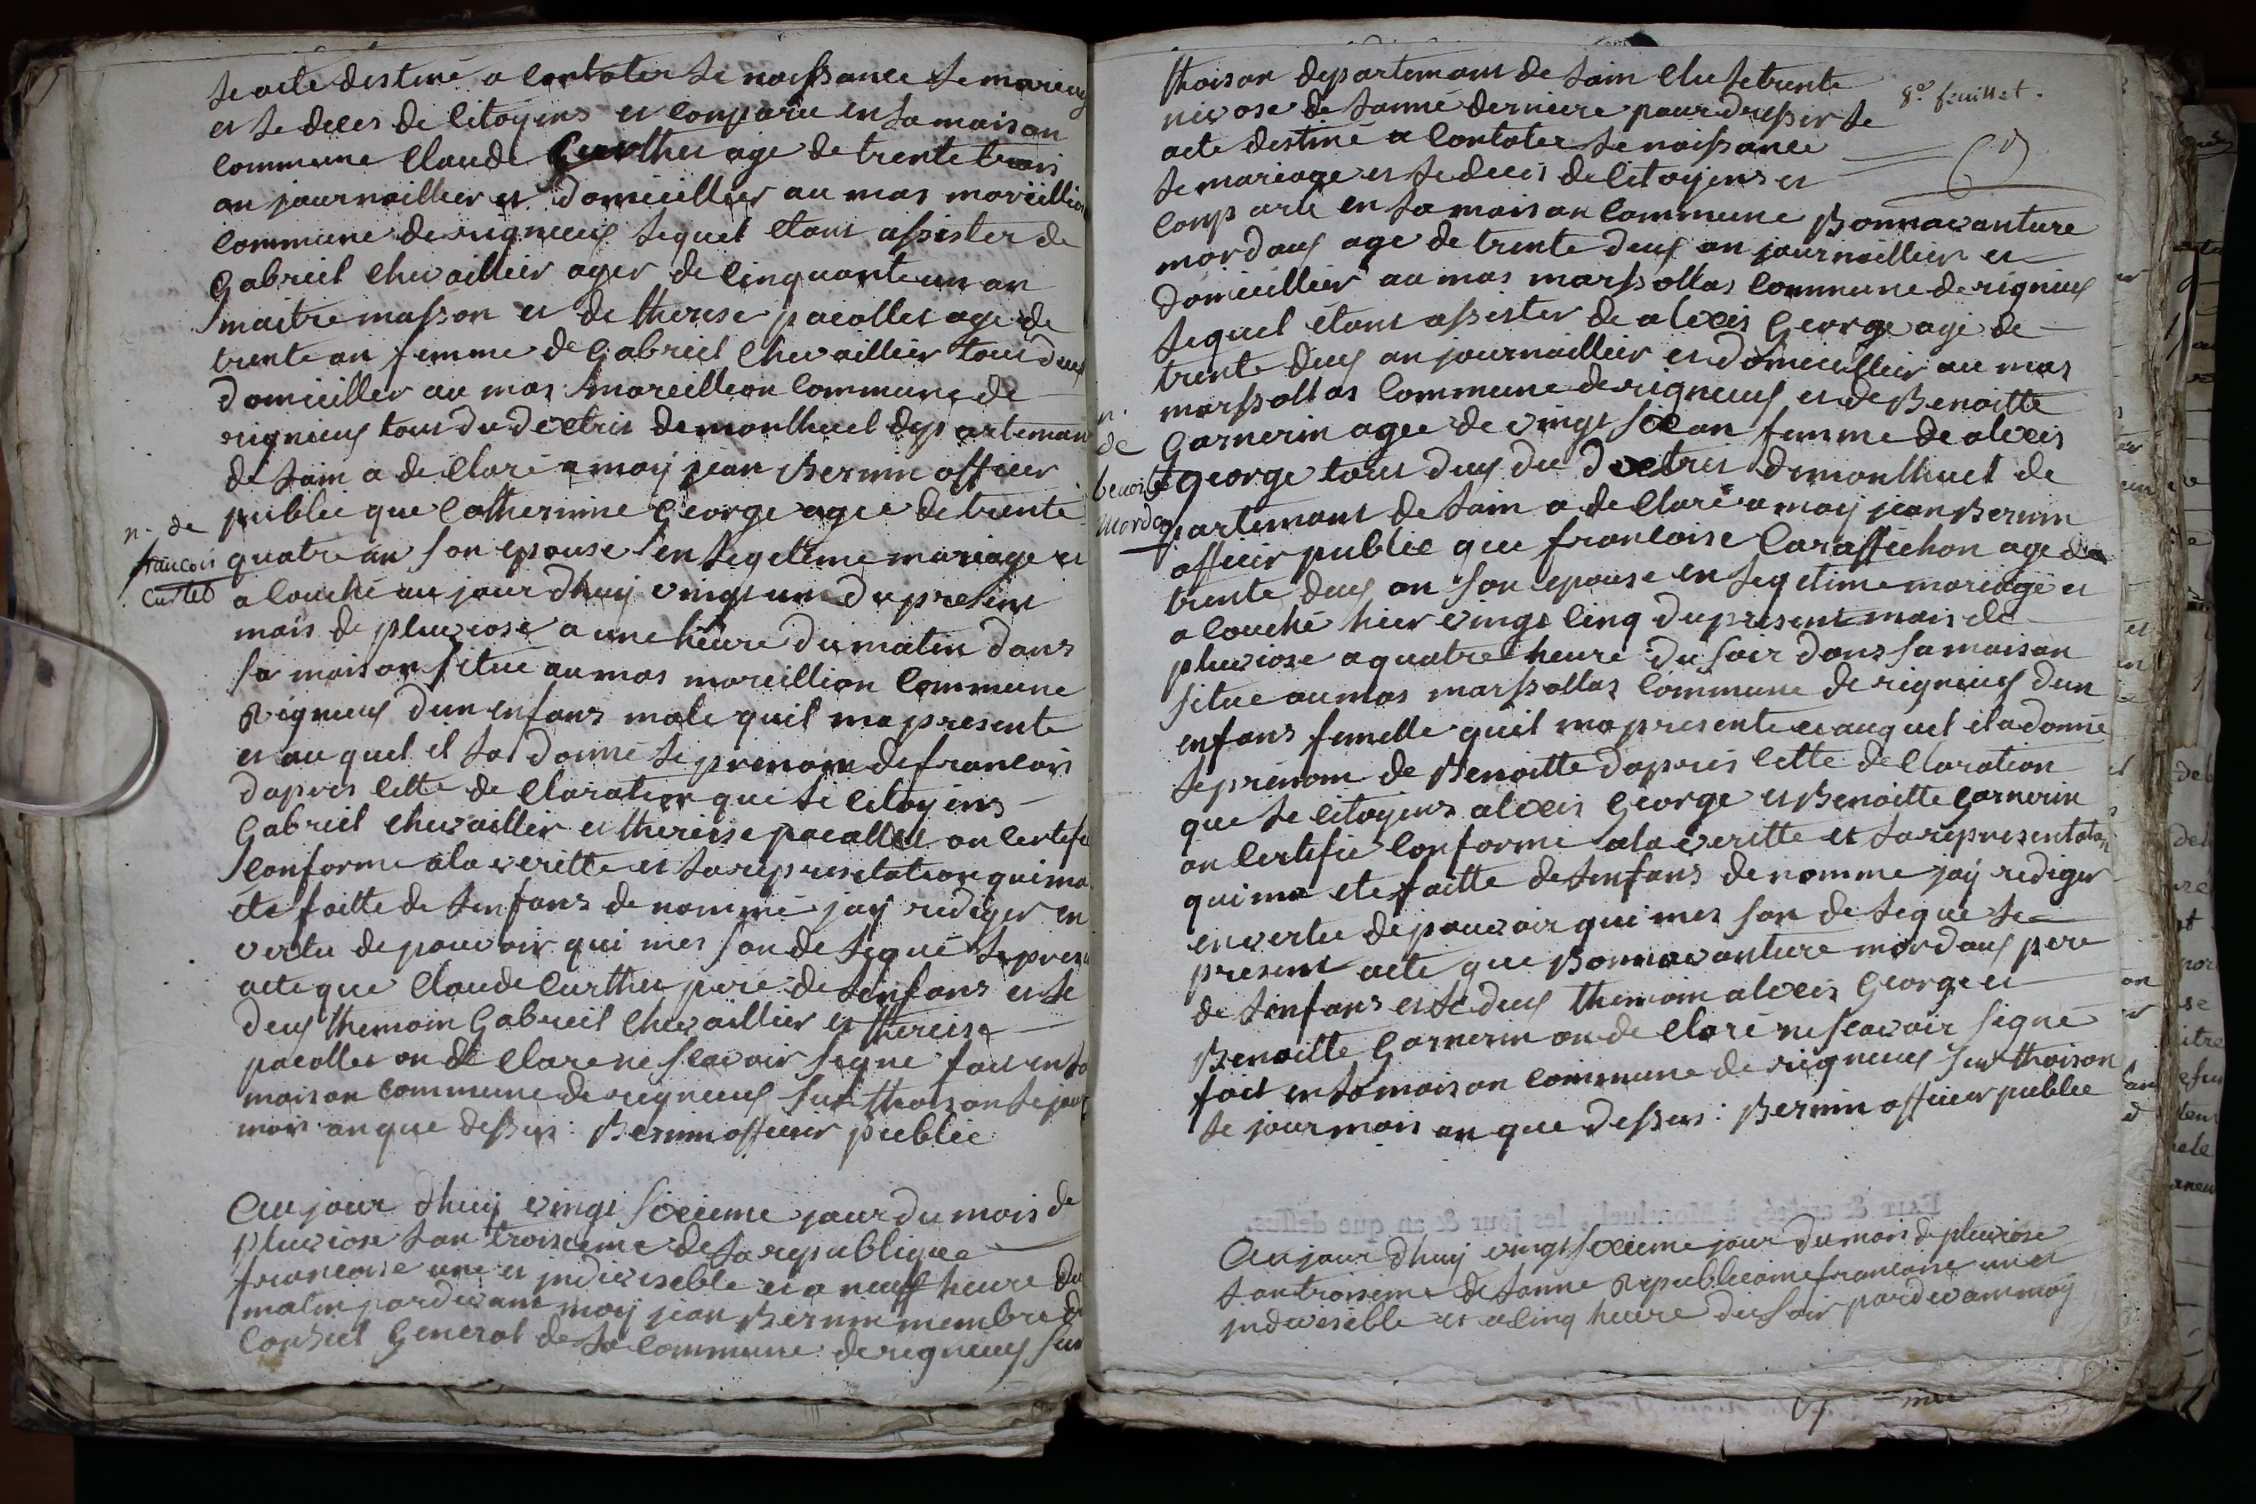 le acte destiné a contater le naissance le mariag
et le deces de citoyens et conparu en la maison
commune Claude Curthet age de trente trois
an journaillier et domicillier au mas moreillion
commune de rigneux lequel etant assister de
Gabriel chevaillier ager de cinquante un an
maitre masson et de therese pacollet age de
trente an femme de Gabriel Chevaillier tout deux
domiciller au mas moreillion commune de
rigneux tout du dixtrit de montluel departeman
de lain a de claré a moy jean Bernin officier
public que Catherinne George agée de trente
n. de
francois
curtet
quatre an son epouse en legetime mariage et
a couché au jour dhuy vingt un du present
mois de pluviose a une heure du matin dans
sa maison situé au mas moreillion Commune
Rigneux dun enfans male quil ma presente
et au quel il lat donné le prenom de francois
dapres cette de claration que le citoyens
Gabriel chevaillier et therese pacollet on certifie
conforme a la veritte et la representation qui ma
ete faitte de lenfans de nommé jay rediger en
vertu de pouvoir qui mes son de legué le presen
acte que Claude Curthet pere de lenfans et le
deux themoin Gabriel chevaillier et therese
pacollet on de claré ne scavoir signe fait en la
maison commune de rigneux sur thoison le jour
mois an que dessus : Bernin officier public
Au jour dhuy vingt sixieme jour du mois de
pluviose lan troisieme de la republique
francoise une et jndiviseble et a neuff heure du
matin pardevant moy jean Bernin membre du
Conseil General de la commune de rigneux sur
8e feuillet.
thoison departemant de lain elu le trente
nivose de lanné derniere pour dresser le
acte destiné a contater le naissance
le mariage et le deces de citoyens et
conparu en la maison commune Bonnavanture
mordaux age de trente deux an journaillier et
domicillier au mas marssollas commune de rigneux
lequel etant assister de alexis George age de
trente deux an journaillier et domicillier au mas
marssollas Commune de rigneux et de Benoitte
n.
de
benoite
mordau
Garnerin agee de vingt six an femme de alexis
george tout deux du dixtrit de montluel de
partemant de lain a de claré a moy jean Bernin
officier public que francoise Caraffichon age de
trente deux an son epouse en legetime mariage et
a couché hier vingt cinq du present mois de
pluviose a quatre heure du soir dans sa maison
situe au mas marssollas Commune de rigneux dun
enfans femelle quil ma presente et auquel il a donné
le prenom de Benoitte dapres cette de claration
que le citoyens alexis George et Benoitte Garnerin
on certifie conforme a la veritte et la representation
qui ma ete faitte de lenfans de nomme jay rediger
en vertu de pouvoir qui mes son de legue le
present acte que Bonnavanture mordaux pere
de lenfans et le deux themoin alexis George et
Benoitte Garnerin on de claré ne scavoir signé
fait en la maison commune de rigneux sur thoison
le jour mois an que dessus : Bernin officier public
Au jour dhuy vingt sixieme jour du mois de pluviose
lan troisieme de lanne Republicaine francoise une et
jndiviseble et a cinq heure du soir pardevant moy